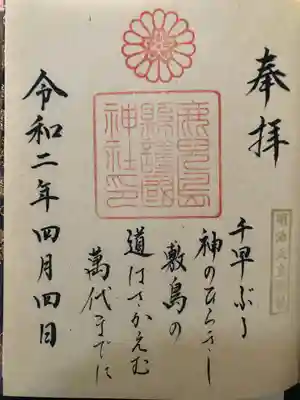 奉拝
鹿兒島
縣護國
神社印
明治天皇御製
千早ぶる
神のひらきし
敷島の
道はさかえむ
萬代までに
令和二年四月四日